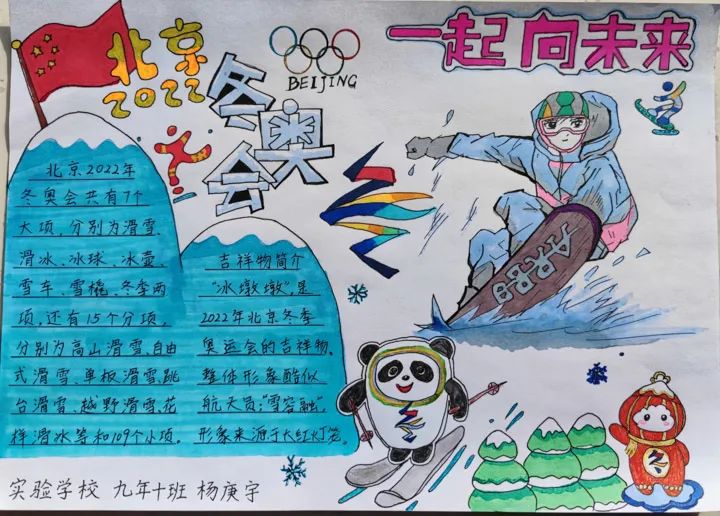 北京
2022
冬奥会
BEIJING
一起向未来
北京2022年
冬奥会共有7个
大项,分别为滑雪、
滑冰、冰球、冰壶、
雪车、雪橇、冬季两
项,还有15个分项,
分别为高山滑雪、自由
式滑雪、单板滑雪、跳
台滑雪、越野滑雪、花
样滑冰等和109个小项。
吉祥物简介
“冰墩墩”,是
2022年北京冬季
奥运会的吉祥物。
整体形象酷似
航天员;“雪容融”,
形象来源于大红灯笼。
实验学校 九年十班 杨庚宇